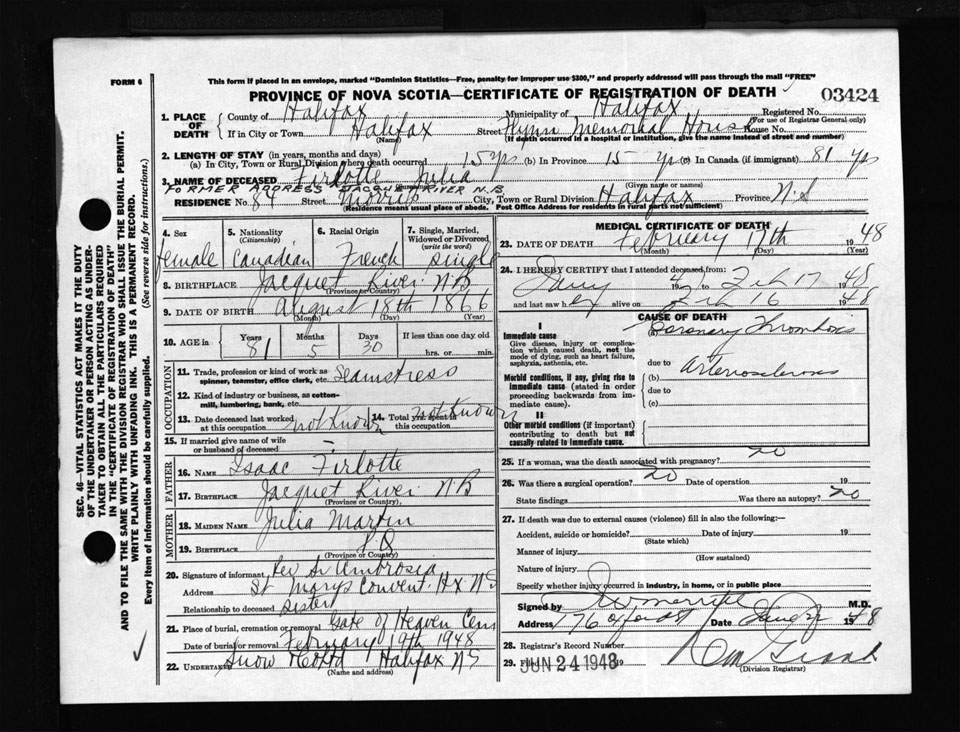 FORM 6
This form if placed in an envelope, marked "Dominion Statistics—Free, penalty for improper use $300," and properly addressed will pass through the mail "FREE"
PROVINCE OF NOVA SCOTIA—CERTIFICATE OF REGISTRATION OF DEATH
03424
1. PLACE OF DEATH
County of Halifax Municipality of Halifax Registered No.
(For use of Registrar General only)
If in City or Town Halifax Street Flynn Memorial House House No.
(Name) (If death occurred in a hospital or institution, give the name instead of street and number)
2. LENGTH OF STAY (in years, months and days)
(a) In City, Town or Rural Division where death occurred 15 yrs (b) In Province 15 yrs (c) In Canada (if immigrant) 81 yrs
3. NAME OF DECEASED Firlotte Julia
(Given name or names)
FORMER ADDRESS JACQUET RIVER N.B.
RESIDENCE No. 84 Street Morris City, Town or Rural Division Halifax Province N.S
(Residence means usual place of abode. Post Office Address for residents in rural parts not sufficient)
4. Sex female
5. Nationality (Citizenship) Canadian
6. Racial Origin French
7. Single, Married, Widowed or Divorced (write the word) Single
8. BIRTHPLACE Jacquet River N.B
(Province or Country)
9. DATE OF BIRTH August 18th 1866
(Month) (Day) (Year)
10. AGE in Years 81 Months 5 Days 30 If less than one day old hrs. or min.
OCCUPATION
11. Trade, profession or kind of work as spinner, teamster, office clerk, etc. Seamstress
12. Kind of industry or business, as cotton-mill, lumbering, bank, etc.
13. Date deceased last worked at this occupation not Known
14. Total yrs. spent in this occupation not Known
15. If married give name of wife or husband of deceased -
FATHER
16. NAME Isaac Firlotte
17. BIRTHPLACE Jacquet River N.B
(Province or Country)
MOTHER
18. MAIDEN NAME Julia Martin
19. BIRTHPLACE P.Q
(Province or Country)
20. Signature of informant Rev Sr Ambrosia
Address St Marys Convent Hx N S
Relationship to deceased Sister
21. Place of burial, cremation or removal Gate of Heaven Cem
Date of burial or removal February 19th 1948
22. UNDERTAKER Snow Halifax N S
(Name and address)
MEDICAL CERTIFICATE OF DEATH
23. DATE OF DEATH February 17th 1948
(Month) (Day) (Year)
24. I HEREBY CERTIFY that I attended deceased from:
19 to Feb 17 1948
and last saw her alive on Feb 16 1948
CAUSE OF DEATH
I
Immediate cause
Give disease, injury or complication which caused death, not the mode of dying, such as heart failure, asphyxia, asthenia, etc.
(a) Coronary Thrombosis
due to
Morbid conditions, if any, giving rise to immediate cause (stated in order proceeding backwards from immediate cause).
(b) Arteriosclerosis
due to
(c)
II
Other morbid conditions (if important) contributing to death but not causally related to immediate cause.
25. If a woman, was the death associated with pregnancy? no
26. Was there a surgical operation? no Date of operation 19
State findings Was there an autopsy? no
27. If death was due to external causes (violence) fill in also the following:—
Accident, suicide or homicide? Date of injury 19
(State which)
Manner of injury
(How sustained)
Nature of injury
Specify whether injury occurred in industry, in home, or in public place
Signed by M.D.
Address 176 Oxford St Date 1948
28. Registrar's Record Number
29. Filed JUN 24 1948 19
(Division Registrar)
SEC. 46—VITAL STATISTICS ACT MAKES IT THE DUTY
OF THE UNDERTAKER OR PERSON ACTING AS UNDER-
TAKER TO OBTAIN ALL THE PARTICULARS REQUIRED
IN THE "CERTIFICATE OF REGISTRATION OF DEATH"
AND TO FILE THE SAME WITH THE DIVISION REGISTRAR WHO SHALL ISSUE THE BURIAL PERMIT.
WRITE PLAINLY WITH UNFADING INK. THIS IS A PERMANENT RECORD.
Every item of information should be carefully supplied. (See reverse side for instructions.)